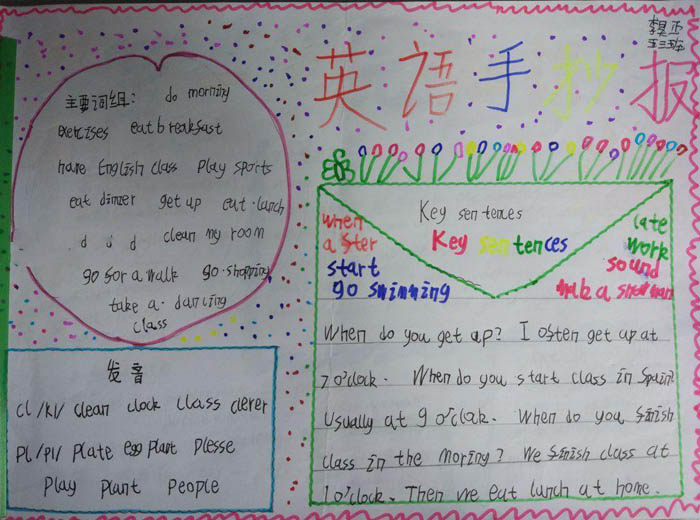 英语手抄报
主要词组: do morning
exercises eat breakfast
have English class play sports
eat dinner get up eat·lunch
clean my room
go for a walk go·shopping
take a·dancing
class
发音
cl /kl/ clean clock class clever
pl /pl/ plate eggplant plesse
play plant people
Key sentences
Key sentences
when
after
start
go swimming
late
work
sound
make a snowman
When do you get up? I often get up at
7 o'clock. When do you start class in Spain?
Usually at 9 o'clok. When do you finish
class in the moring? We finish class at
1 o'clock. Then we eat lunch at home.